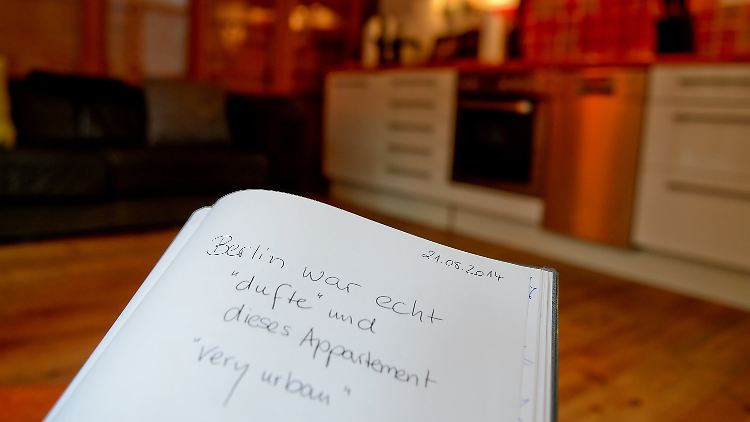 21.08.2014
Berlin war echt
"dufte" und
dieses Appartement
"very urban"